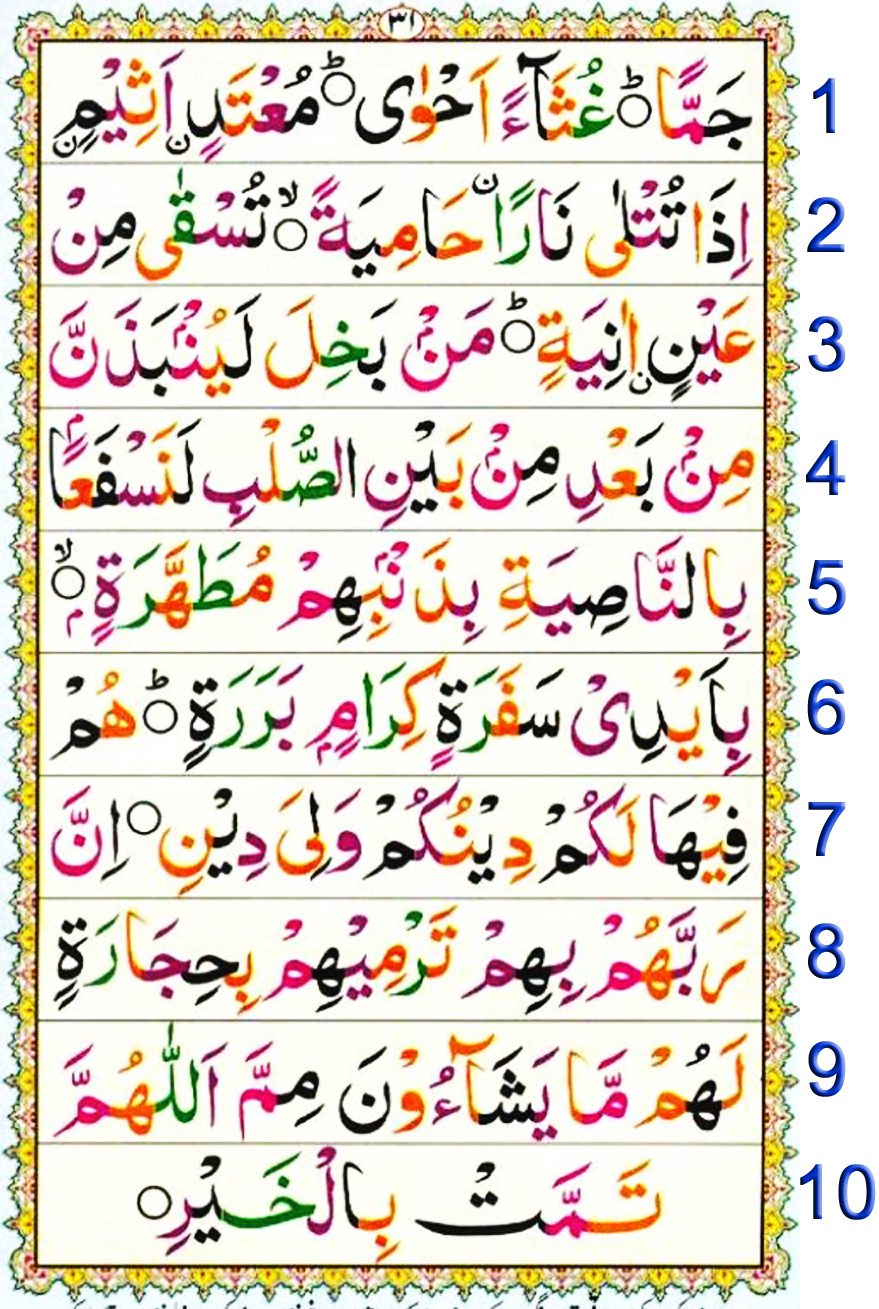 ٣١
جَمًّا ؕ○ غُثَآءً اَحْوٰى ؕ○ مُعْتَدٍ اَثِيْمٍ 1
اِذَا تُتْلٰى نَارًا حَامِيَةً ۙ○ تُسْقٰى مِنْ 2
عَيْنٍ اٰنِيَةٍ ؕ○ مَنْۢ بَخِلَ لَيُنْۢبَذَنَّ 3
مِنْۢ بَعْدِ مِنْۢ بَيْنِ الصُّلْبِ لَنَسْفَعًۢا 4
بِالنَّاصِيَةِ بِذَنْۢبِهِمْ مُطَهَّرَةٍۭ ۙ○ 5
بِاَيْدِىْ سَفَرَةٍ كِرَامٍۭ بَرَرَةٍ ؕ○ هُمْ 6
فِيْهَا لَكُمْ دِيْنُكُمْ وَلِىَ دِيْنِ ○ اِنَّ 7
رَبَّهُمْ بِهِمْ تَرْمِيْهِمْ بِحِجَارَةٍ 8
لَهُمْ مَّا يَشَآءُوْنَ مِمَّ اَللّٰهُمَّ 9
تَمَّتْ بِالْخَيْرِ ○ 10